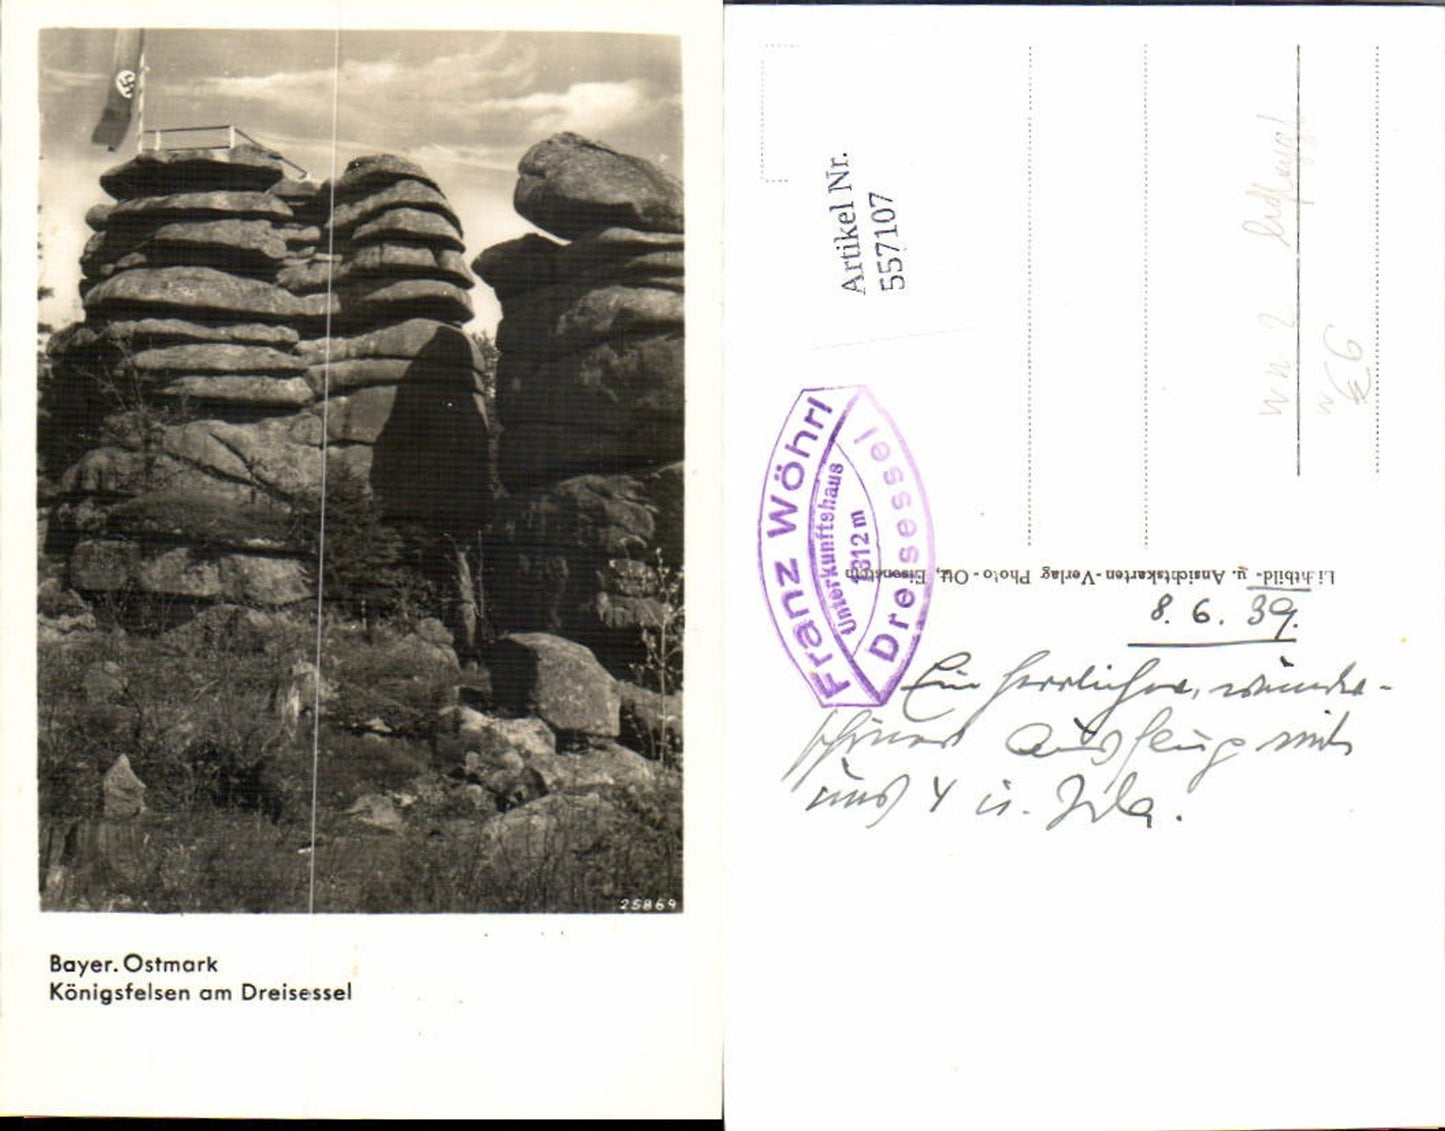 25869
Bayer. Ostmark
Königsfelsen am Dreisessel
Artikel Nr.
557107
Franz Wöhrl
Unterkunftshaus
1312 m
Dreisessel
Lichtbild- u. Ansichtskarten-Verlag Photo-Ott, Eisenstein
8. 6. 39.
Ein herrlicher, wunder-
schöner Ausflug mit
uns 4 u.